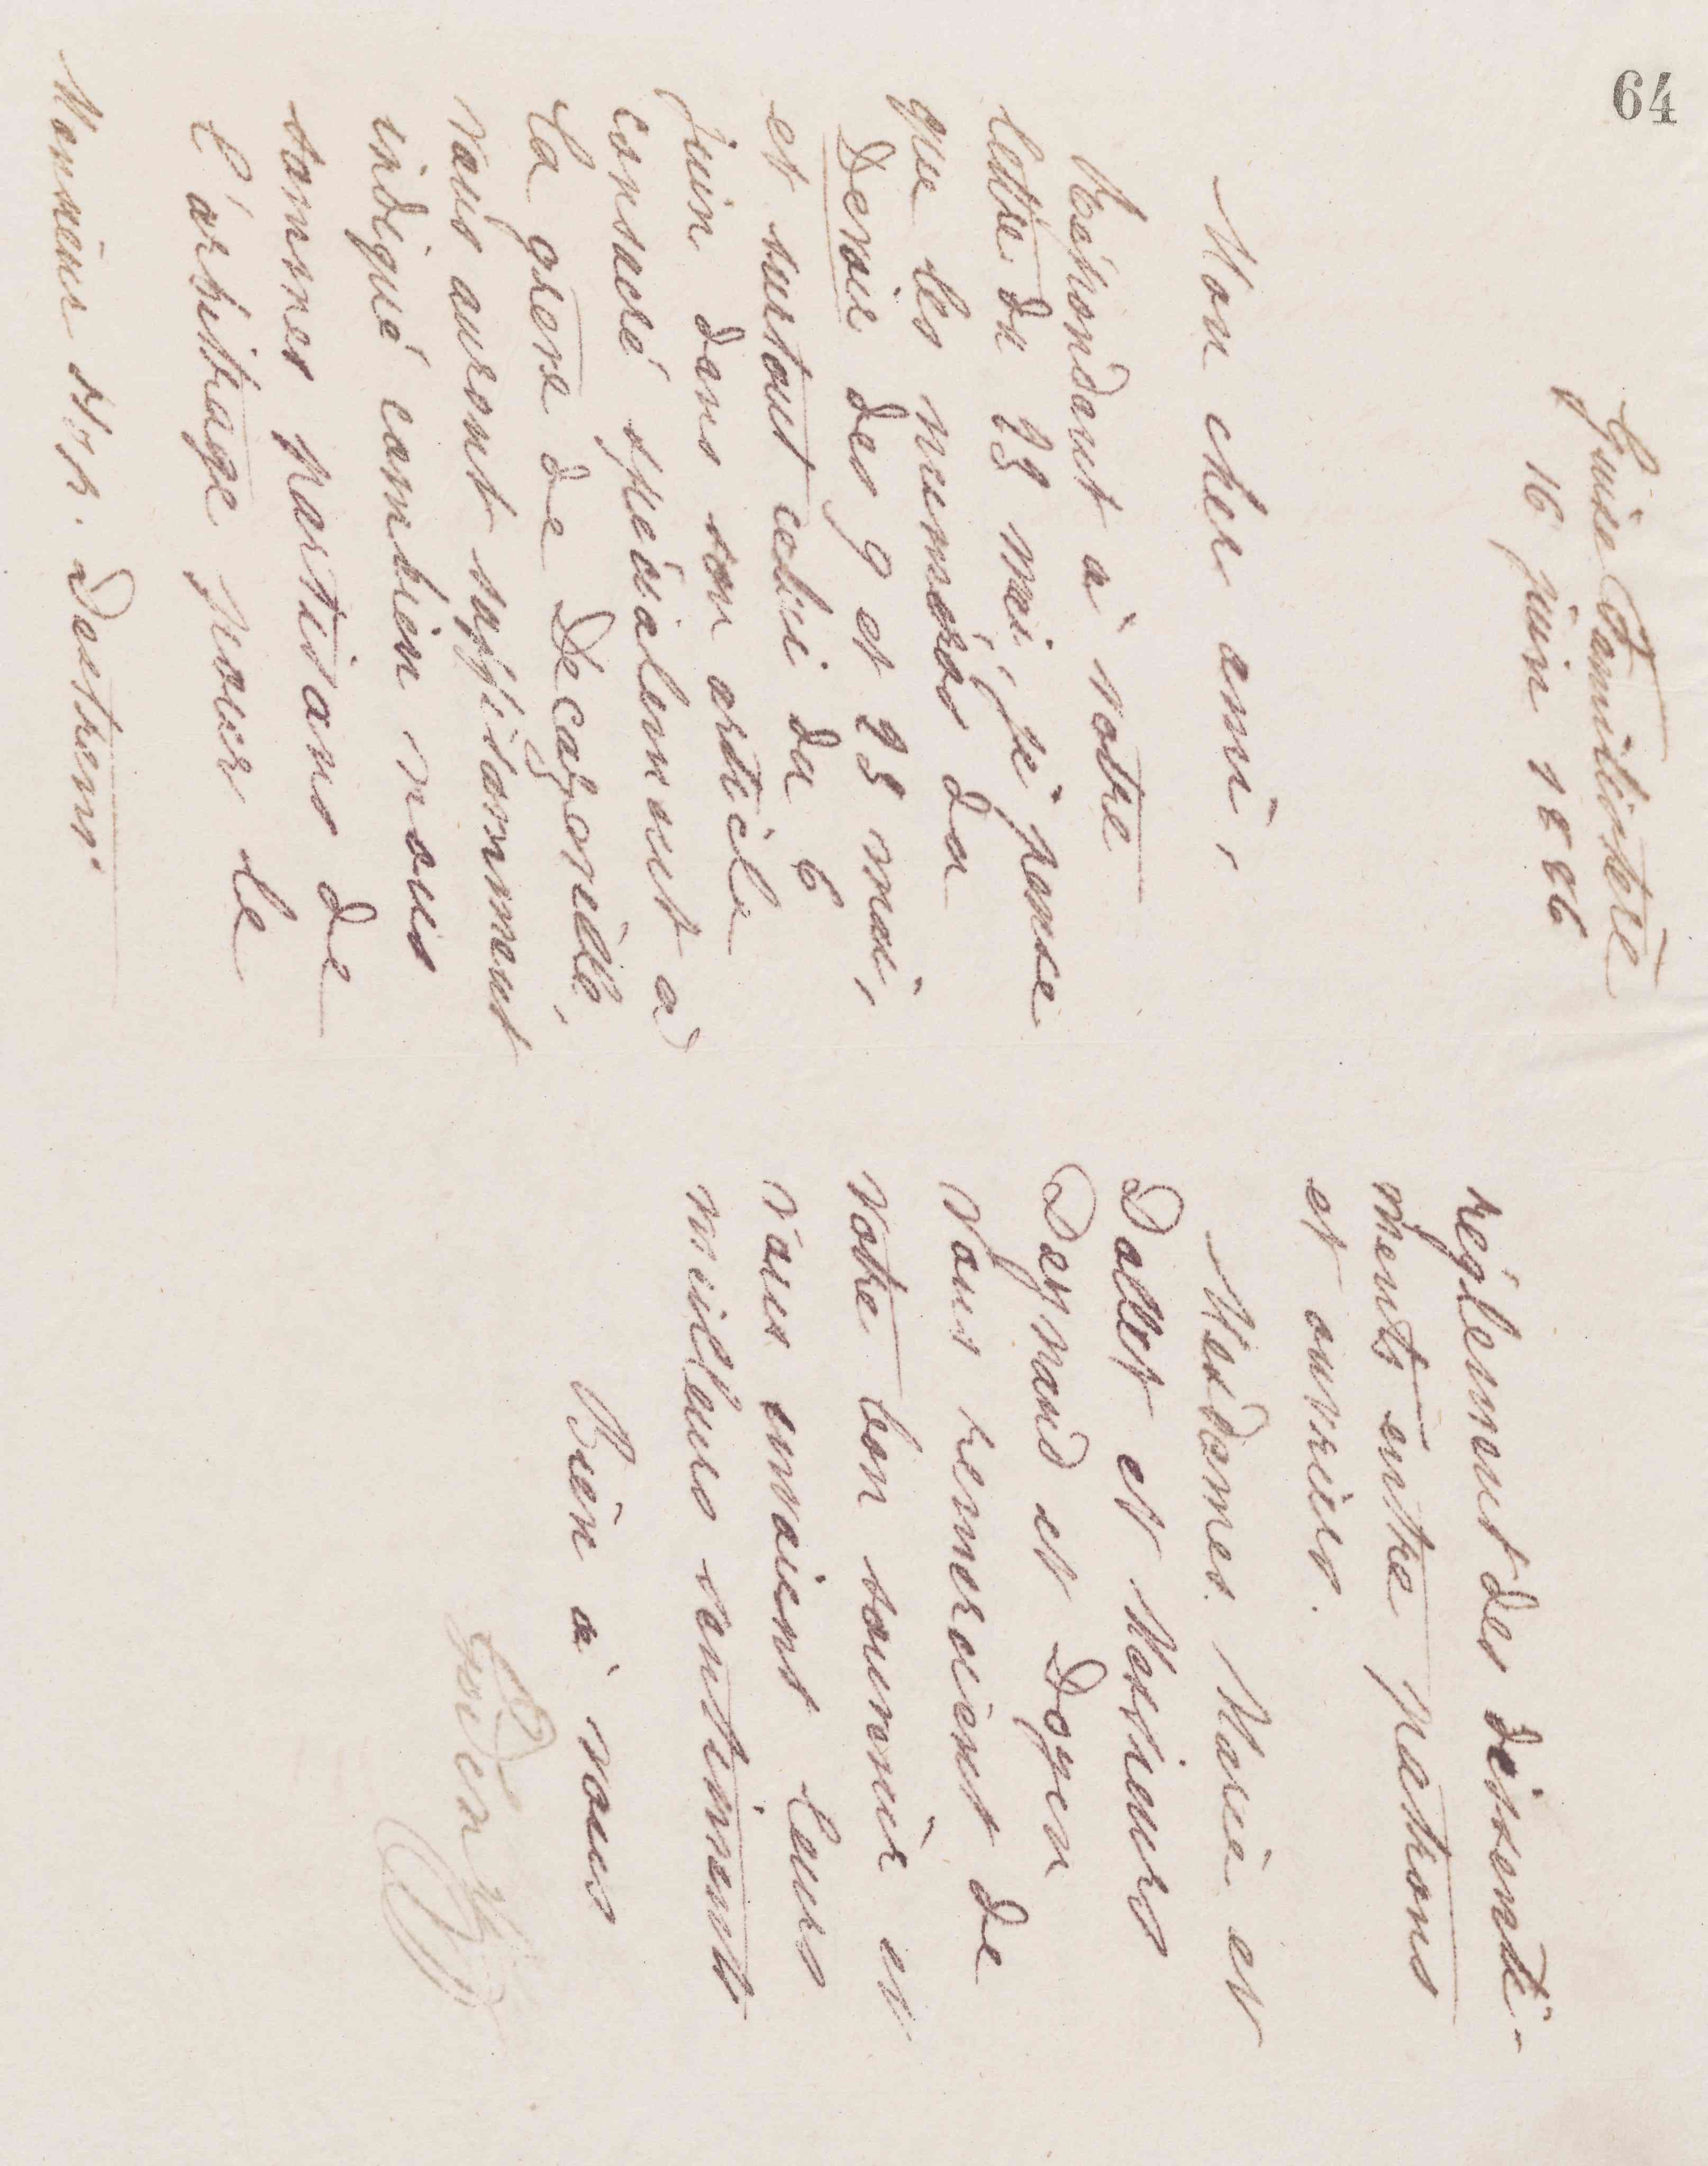 64
Guise Familistère
16 juin 1886
Mon cher ami,
Répondant à votre
lettre du 23 mai, je pense
que les numéros du
Devoir des 9 et 23 mai,
et surtout celui du 6
juin dans son article
consacré spécialement à
la grève de Decazeville,
vous auront suffisamment
indiqué combien nous
sommes partisans de
l'arbitrage pour le
Monsieur Hyp. Destrem
règlement des dissenti-
ments entre patrons
et ouvriers.
Mesdames Marie et
Dallet et Messieurs
Deynaud et Doyen
vous remercient de
votre bon souvenir et
vous envoient leurs
meilleurs sentiments
Bien à vous
Godin